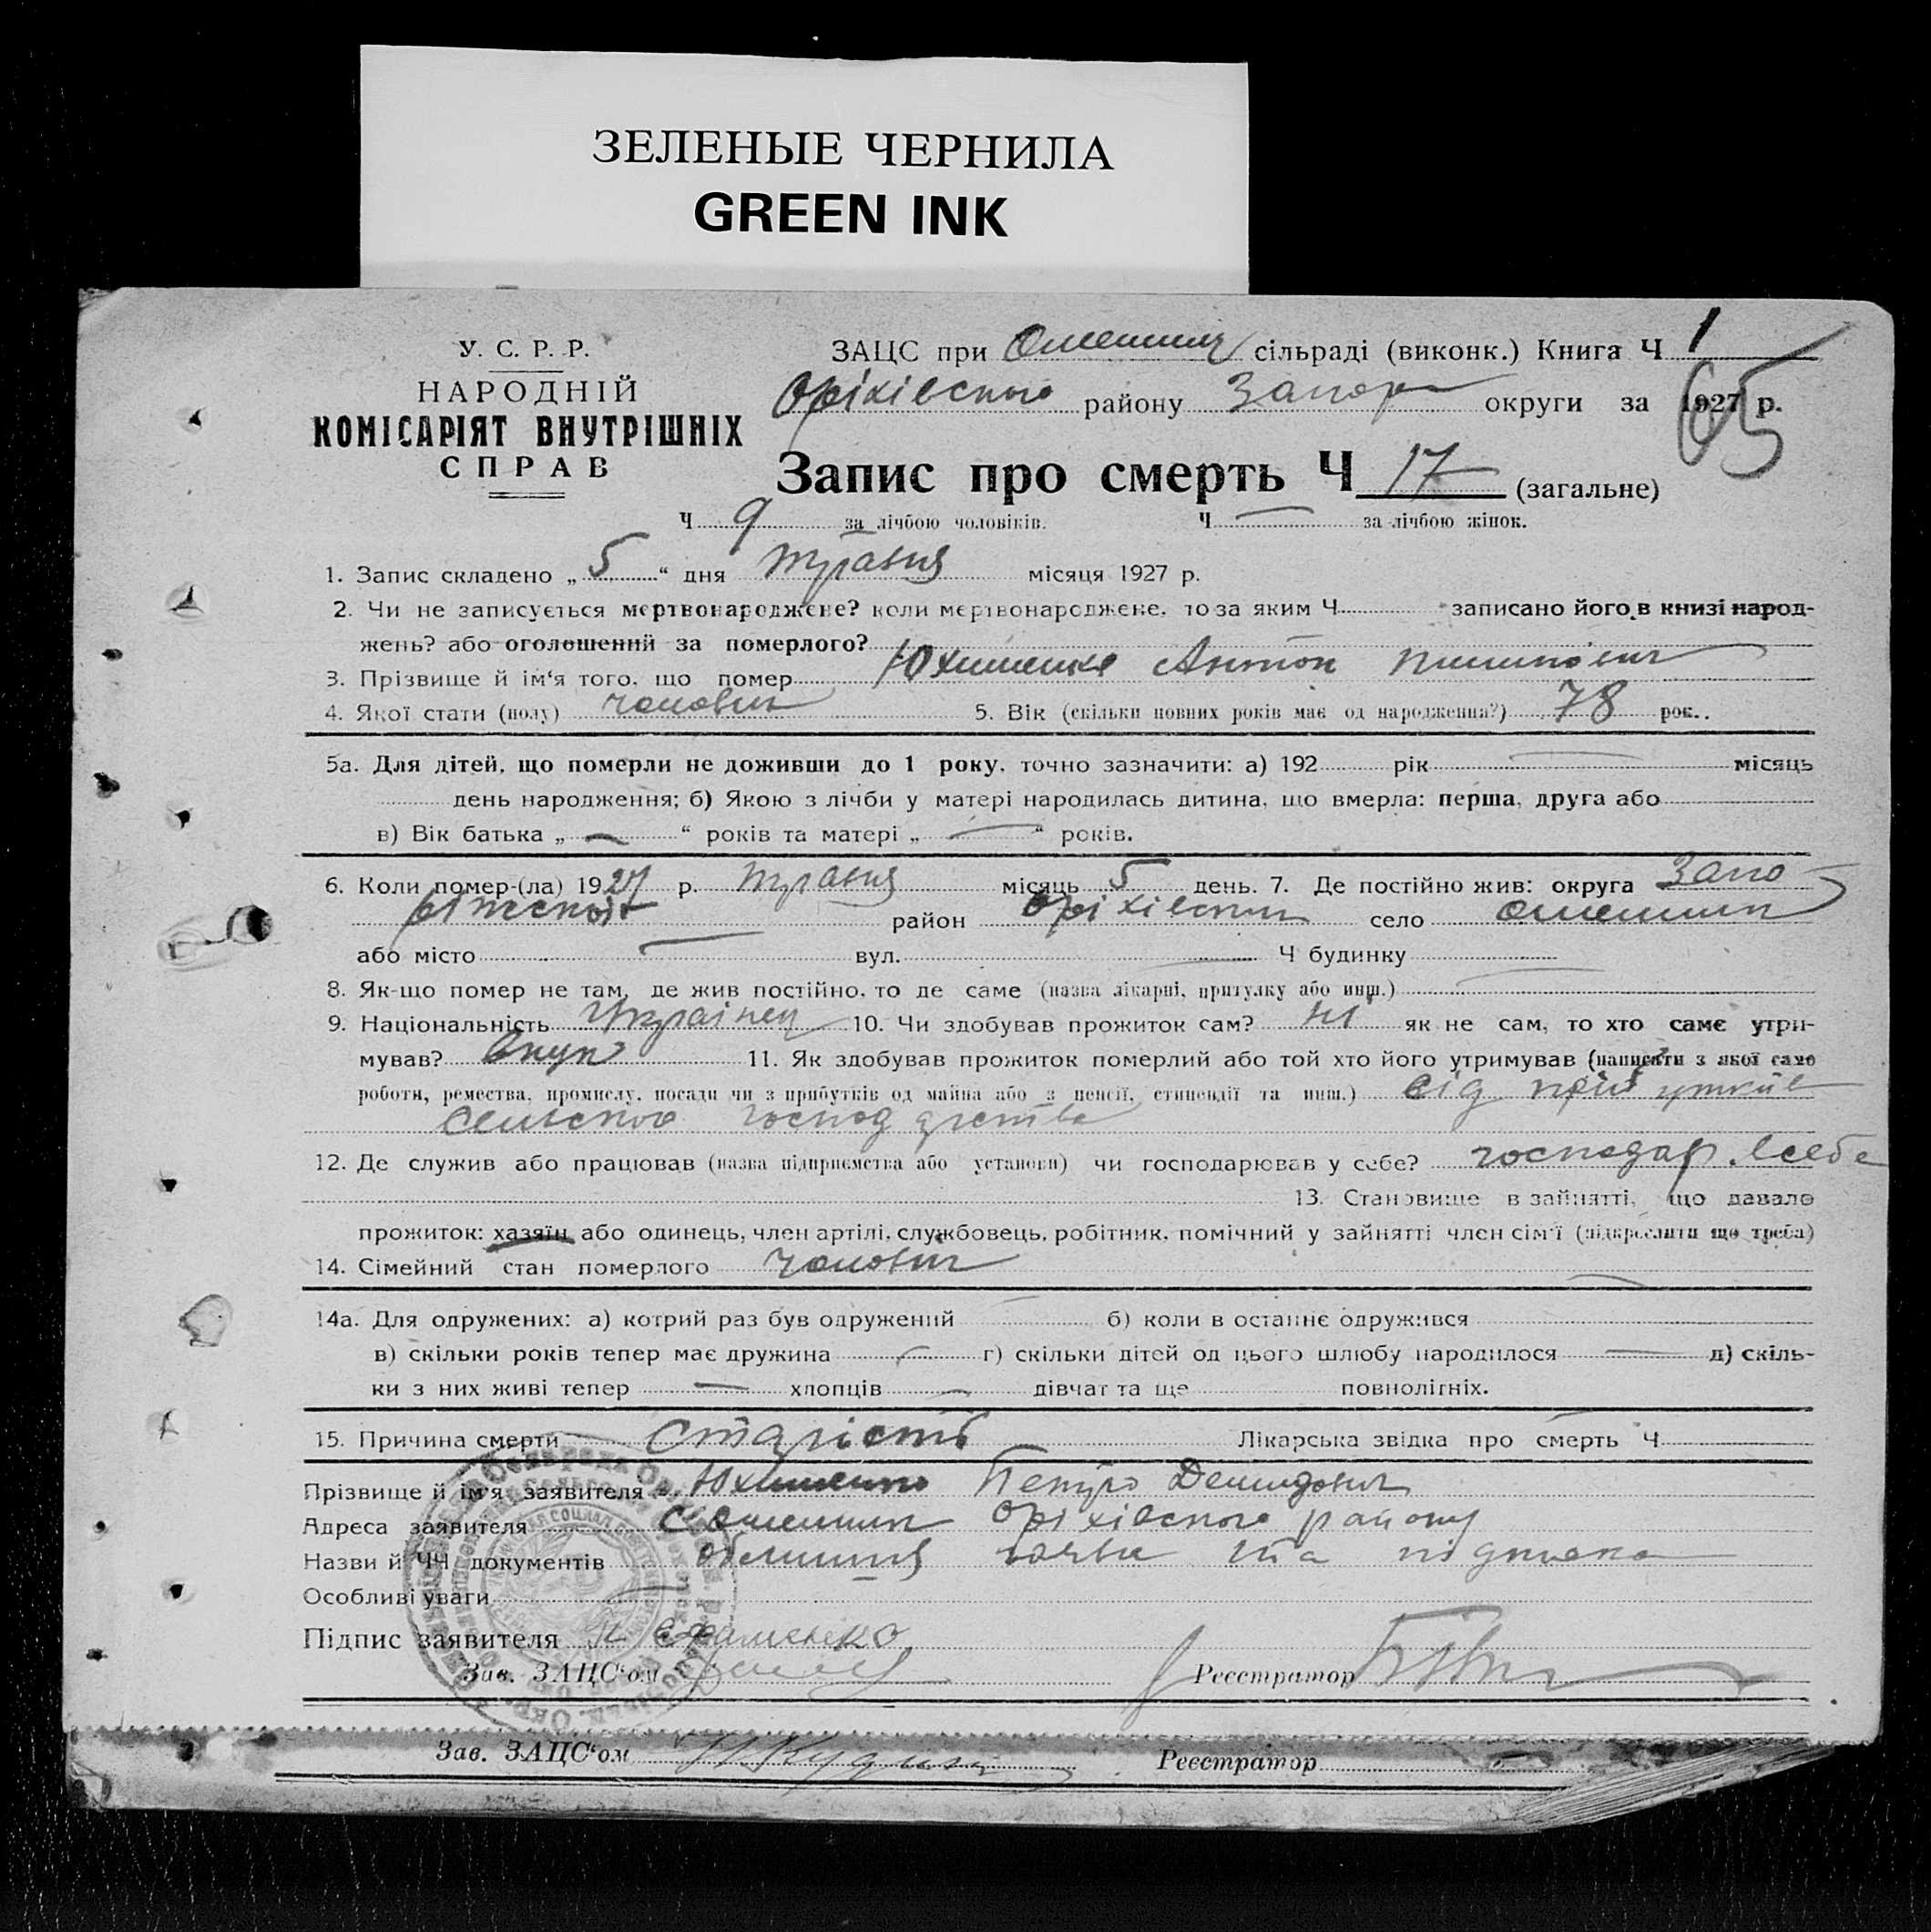 ЗЕЛЕНЫЕ ЧЕРНИЛА
GREEN INK
У. С. Р. Р.
НАРОДНІЙ
КОМІСАРІЯТ ВНУТРІШНІХ
СПРАВ
ЗАЦС при сільраді (виконк.) Книга Ч 1
Оріхівського району Запор округи за 1927 р.
65
Запис про смерть Ч 17 (загальне)
Ч 9 за лічбою чоловіків. Ч — за лічбою жінок.
1. Запис складено „ 5 “ дня травня місяця 1927 р.
2. Чи не записується мертвонароджене? коли мертвонароджене, то за яким Ч записано його в книзі народ-
жень? або оголошений за померлого?
3. Прізвище й ім‘я того, що помер Юхименко Антон
4. Якої стати (полу) чоловік 5. Вік (скільки повних років має од народження?) 78 рок..
5а. Для дітей, що померли не доживши до 1 року, точно зазначити: а) 192 рік — місяць
день народження; б) Якою з лічби у матері народилась дитина, що вмерла: перша, друга або
в) Вік батька „ — “ років та матері „ — “ років.
6. Коли помер-(ла) 1927 р. травня місяць 5 день. 7. Де постійно жив: округа Запо
ріжської район Оріхівський село
або місто — вул. — Ч будинку
8. Як-що помер не там, де жив постійно, то де саме (назва лікарні, притулку або инш.) —
9. Національність Українец 10. Чи здобував прожиток сам? Ні як не сам, то хто саме утри-
мував? Внук 11. Як здобував прожиток померлий або той хто його утримував (написати з якої саме
роботи, ремества, промислу, посади чи з прибутків од майна або з пенсії, стипендії та инш.) від прибутків
сельского господарства
12. Де служив або працював (назва підприємства або установи) чи господарював у себе? господар. всебе
13. Становище в зайнятті, що давало
прожиток: хазяїн або одинець, член артілі, службовець, робітник, помічний у зайнятті член сім‘ї (підкреслити що треба)
14. Сімейний стан померлого чоловік
14а. Для одружених: а) котрий раз був одружений б) коли в останнє одружився
в) скільки років тепер має дружина — г) скільки дітей од цього шлюбу народилося — д) скіль-
ки з них живі тепер — хлопців — дівчат та ще повнолітніх.
15. Причина смерти старість Лікарська звідка про смерть Ч
Прізвище й ім‘я заявителя Юхименко Петро Демидович
Адреса заявителя Оріхівського району
Назви й ЧЧ документів та підписка
Особливі уваги —
Підпис заявителя
Зав. ЗАЦС‘ом Реєстратор
Зав. ЗАЦС‘ом Реєстратор